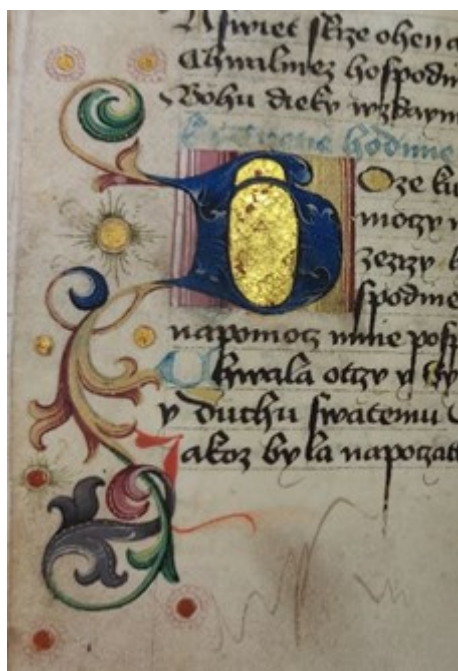 A swiet skrze ohen a
Chwalmez hospodi
Bohu dieky wzdaym
hodinie
Boze ku
moczy
zezrzy k
spodine
napomocz mnie posp
Chwala otczy y Sy
y duchu swatemu
Jakoz byla napoczat